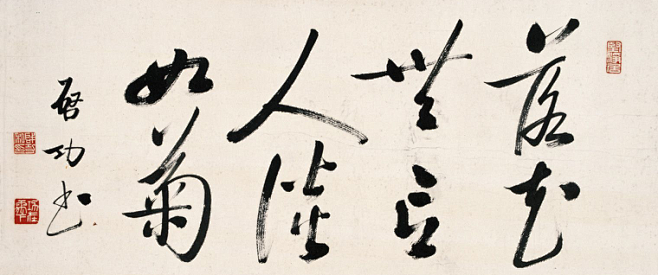 落花
無言
人澹
如菊
启功书